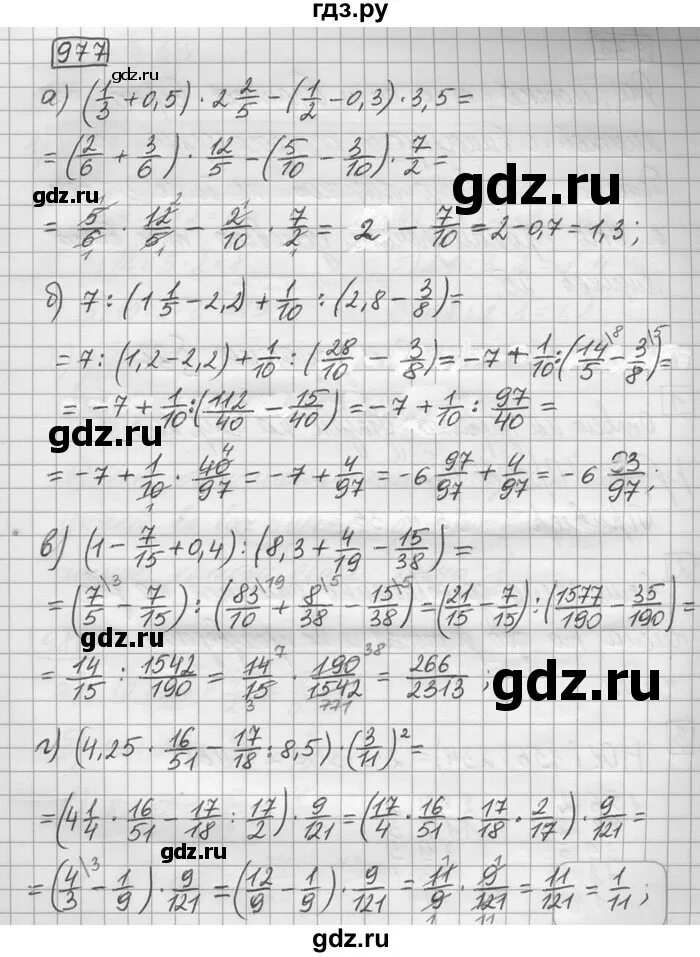 гдз.ру
977
gdz.ru
а) (1/3 + 0,5) · 2 2/5 − (1/2 − 0,3) · 3,5 =
= (2/6 + 3/6) · 12/5 − (5/10 − 3/10) · 7/2 =
gdz.ru
gdz.ru
= 5/6 · 12/5 − 2/10 · 7/2 = 2 − 7/10 = 2 − 0,7 = 1,3;
б) 7 : (1 1/5 − 2,2) + 1/10 : (2,8 − 3/8) =
= 7 : (1,2 − 2,2) + 1/10 : (28/10 − 3/8) = −7 + 1/10 : (14/5 \8 − 3/8 \5) =
= −7 + 1/10 : (112/40 − 15/40) = −7 + 1/10 : 97/40 =
gdz.ru
gdz.ru
= −7 + 1/10 · 40/97 = −7 + 4/97 = −6 97/97 + 4/97 = −6 93/97;
в) (1 − 7/15 + 0,4) : (8,3 + 4/19 − 15/38) =
= (7/5 \3 − 7/15) : (83/10 \19 + 8/38 \5 − 15/38 \5) = (21/15 − 7/15) : (1577/190 − 35/190) =
gdz.ru
gdz.ru
= 14/15 : 1542/190 = 14/15 · 190/1542 = 266/2313;
г) (4,25 · 16/51 − 17/18 : 8,5) · (3/11)² =
= (4 1/4 · 16/51 − 17/18 : 17/2) · 9/121 = (17/4 · 16/51 − 17/18 · 2/17) · 9/121 =
gdz.ru
= (4/3 \3 − 1/9) · 9/121 = (12/9 − 1/9) · 9/121 = 11/9 · 9/121 = 11/121 = 1/11;
gdz.ru